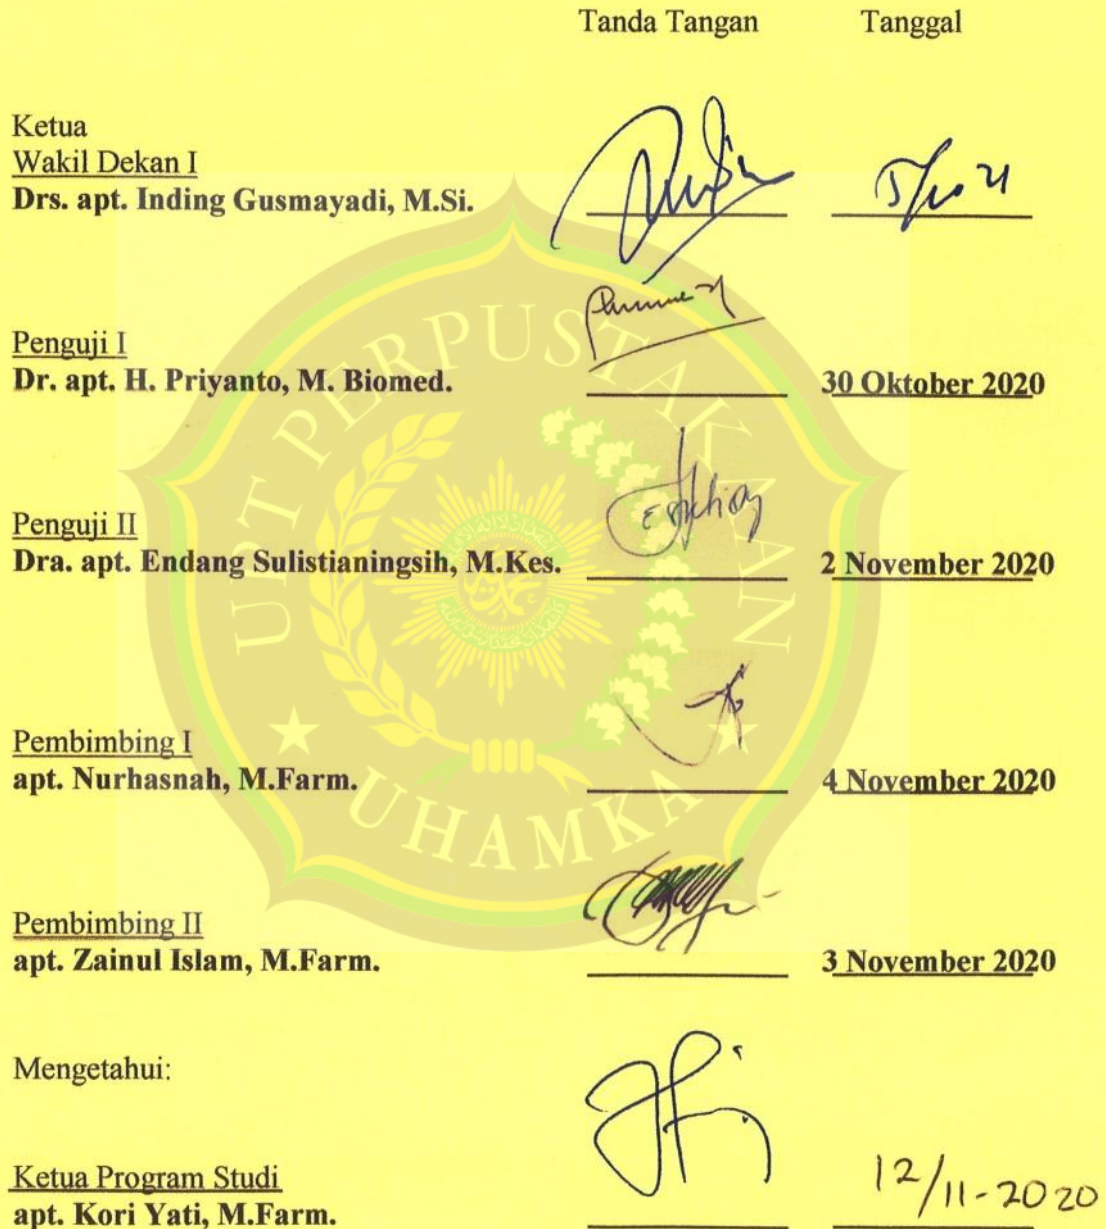 Tanda Tangan Tanggal
Ketua
Wakil Dekan I
Drs. apt. Inding Gusmayadi, M.Si.
Penguji I
Dr. apt. H. Priyanto, M. Biomed. 30 Oktober 2020
Penguji II
Dra. apt. Endang Sulistianingsih, M.Kes. 2 November 2020
Pembimbing I
apt. Nurhasnah, M.Farm. 4 November 2020
Pembimbing II
apt. Zainul Islam, M.Farm. 3 November 2020
Mengetahui:
Ketua Program Studi
apt. Kori Yati, M.Farm. 12/11-2020
UPT PERPUSTAKAAN
UHAMKA